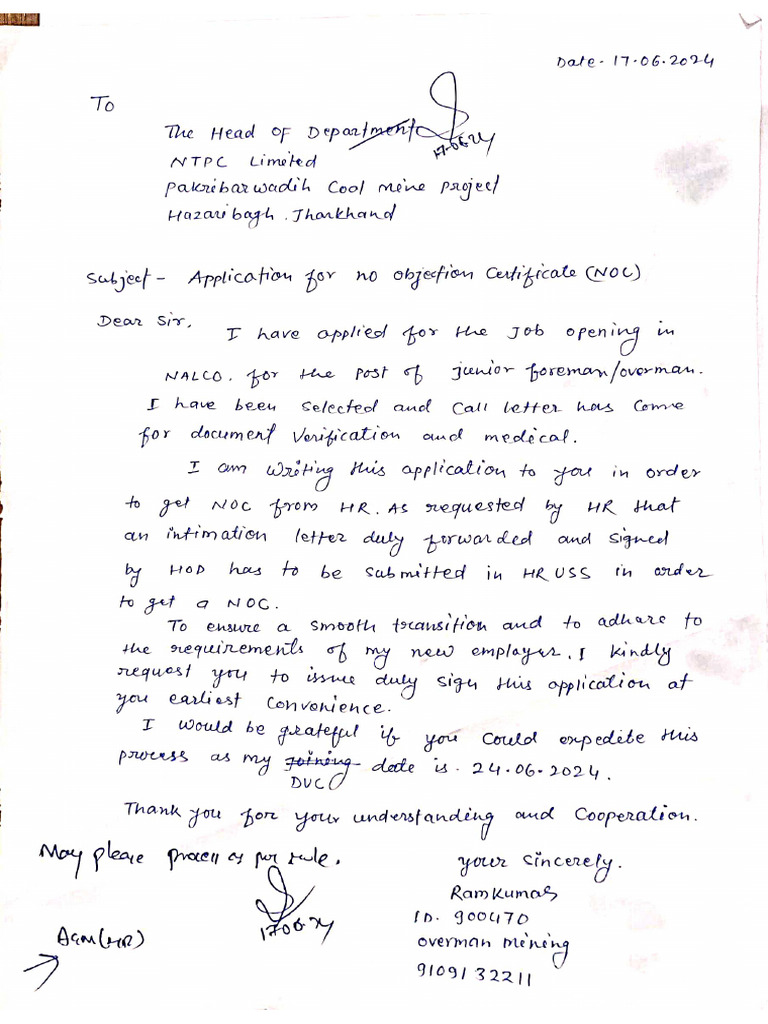 Date- 17.06.2024
To
The Head of Department
17-06-24
NTPC Limited
Pakribarwadih Cool mine project
Hazaribagh. Jharkhand
Subject - Application for no objection Certificate (NOC)
Dear Sir,
I have applied for the Job opening in
NALCO. for the post of junior foreman/overman.
I have been selected and Call letter has come
for document verification and medical.
I am writing this application to you in order
to get NOC from HR. As requested by HR that
an intimation letter duly forwarded and signed
by HOD has to be submitted in HR USS in order
to get a NOC.
To ensure a smooth transition and to adhare to
the requirements of my new employer. I kindly
request you to issue duly sign this application at
you earliest convenience.
I would be grateful if you could expedite this
process as my Joining date is. 24.06.2024.
DVC
Thank you for your understanding and Cooperation.
May please process as per rule.
your sincerely.
Ramkumar
17-06-24
ID. 900470
AGM(HR)
overman mining
9109132211